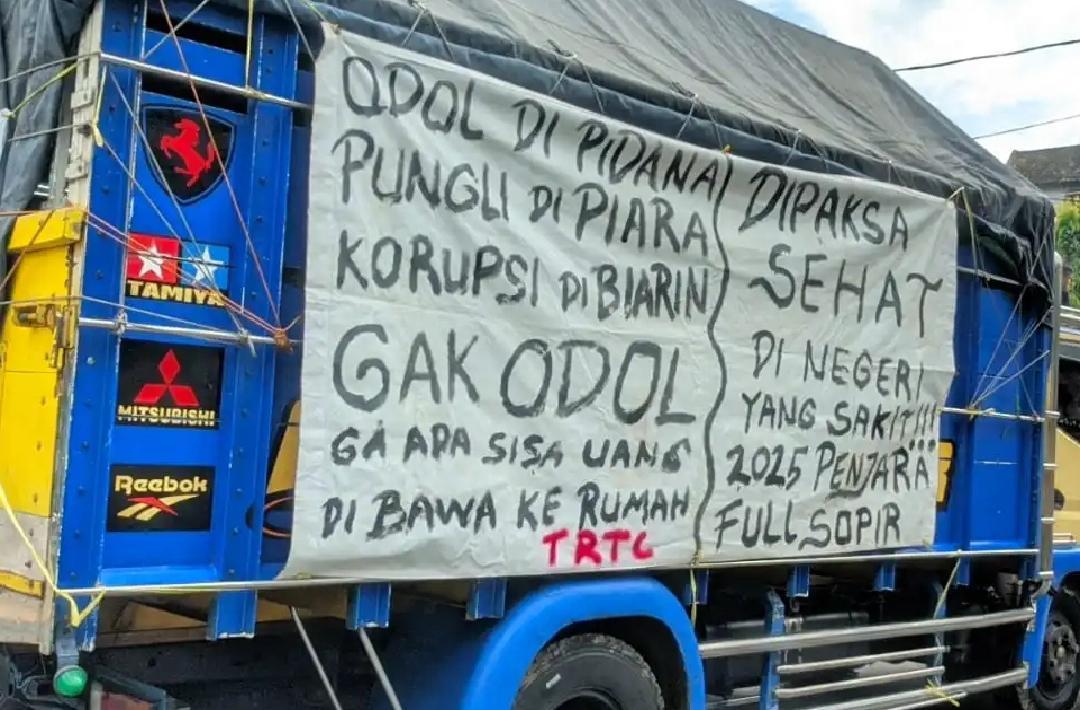 TAMIYA
MITSUBISHI
Reebok
ODOL DI PIDANA
PUNGLI DI PIARA
KORUPSI DI BIARIN
GAK ODOL
GA ADA SISA UANG
DI BAWA KE RUMAH
TRTC
DIPAKSA
SEHAT
DI NEGERI
YANG SAKIT!!!
2025 PENJARA
FULL SOPIR